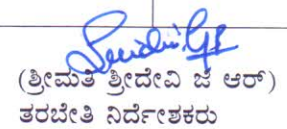 (ಶ್ರೀಮತಿ ಶ್ರೀದೇವಿ ಜಿ ಆರ್)
ತರಬೇತಿ ನಿರ್ದೇಶಕರು